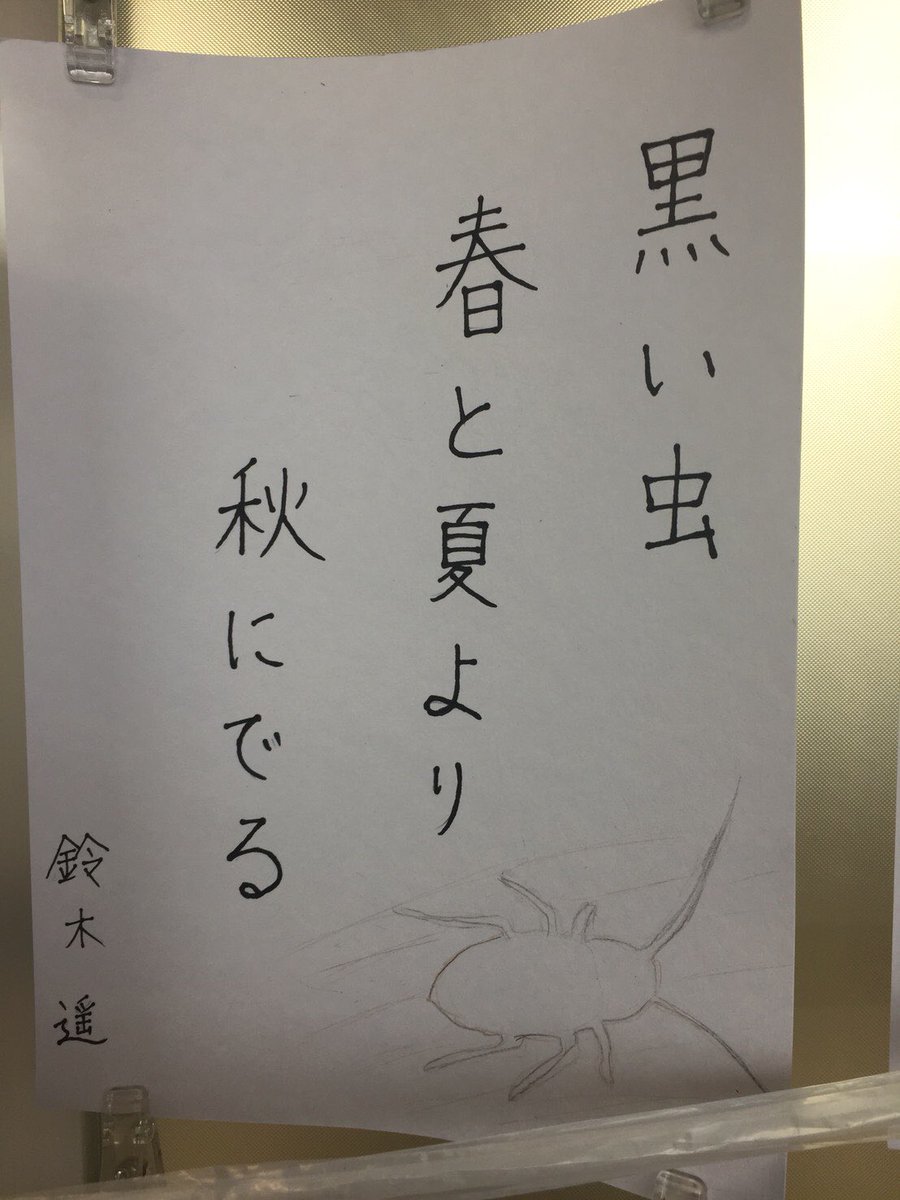 黒い虫
春と夏より
秋にでる
鈴木 遥